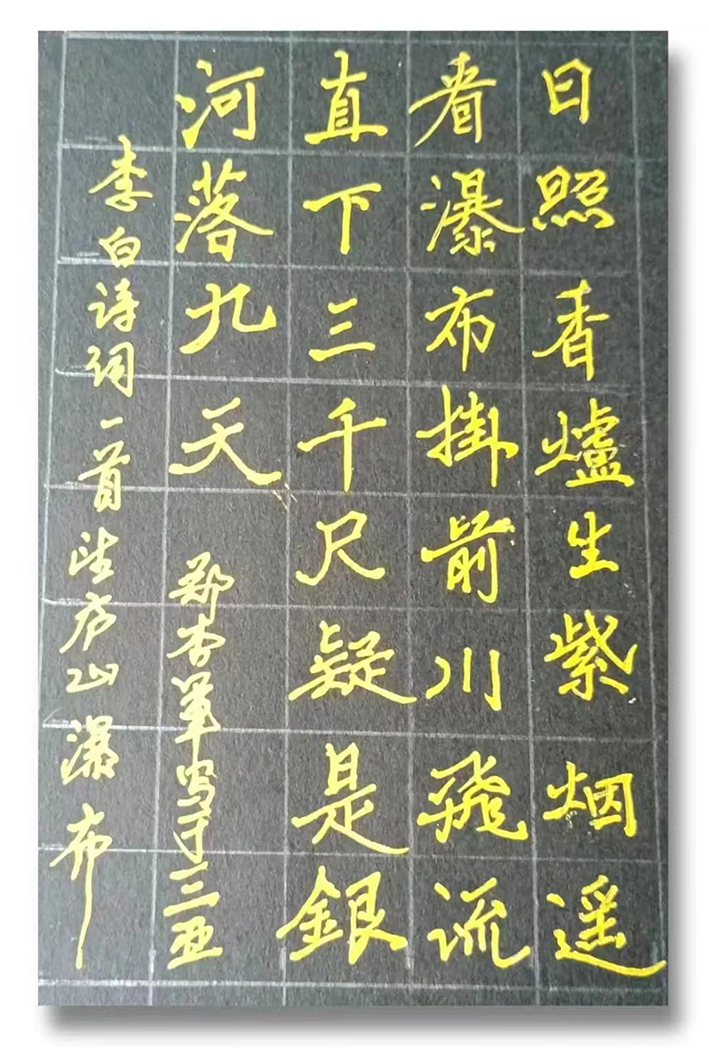 日照香爐生紫烟遥
看瀑布掛前川飛流
直下三千尺疑是銀
河落九天
郑杏軍写于三亚
李白诗词一首望庐山瀑布